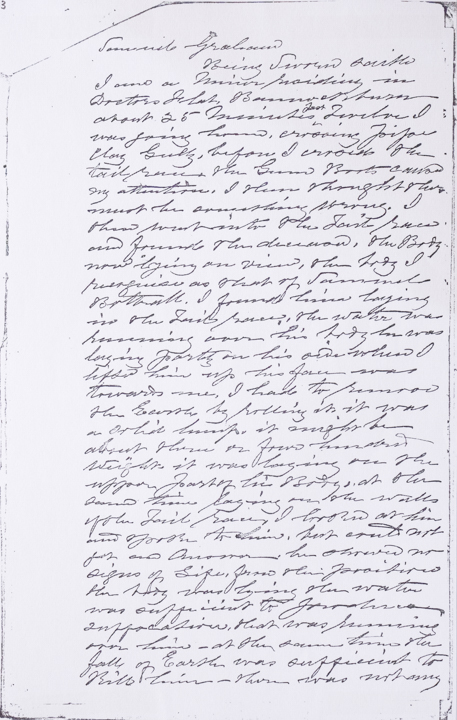 3
Samuel Graham
Being Sworn saith
I am a Miner residing in
Doctors Flat, Bannockburn
about 25 Minutes past Twelve I
was going home, crossing Pipe
Clay Gully, before I crossed the
tail race. the Gum Boots caused
my attention, I then thought there
must be something wrong, I
then went into the Tail race
and found the deceased, the Body
now lying on view, the body I
recognise as that of Samuel
Bothall. I found him laying
in the Tail race, the water was
running over his body he was
laying partly on his side when I
lifted him up his face was
towards me, I had to remove
the Earth by rolling it it was
a solid lump. it might be
about three or four hundred
weight it was laying on the
upper part of his Body, at the
same time laying on the walls
of the Tail race, I looked at him
and spoke to him, but could not
get an Answer. he showed no
signs of Life, from the position
the body was lying the water
was sufficient to produce
suffocation, that was running
over him - at the same time the
fall of Earth was sufficient to
Kill him - there was not any